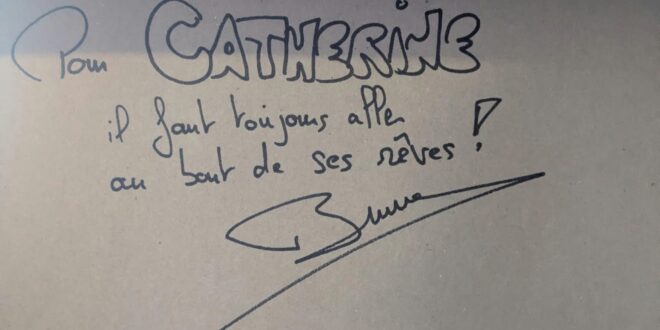 Pour CATHERINE
il faut toujours aller
au bout de ses rêves !